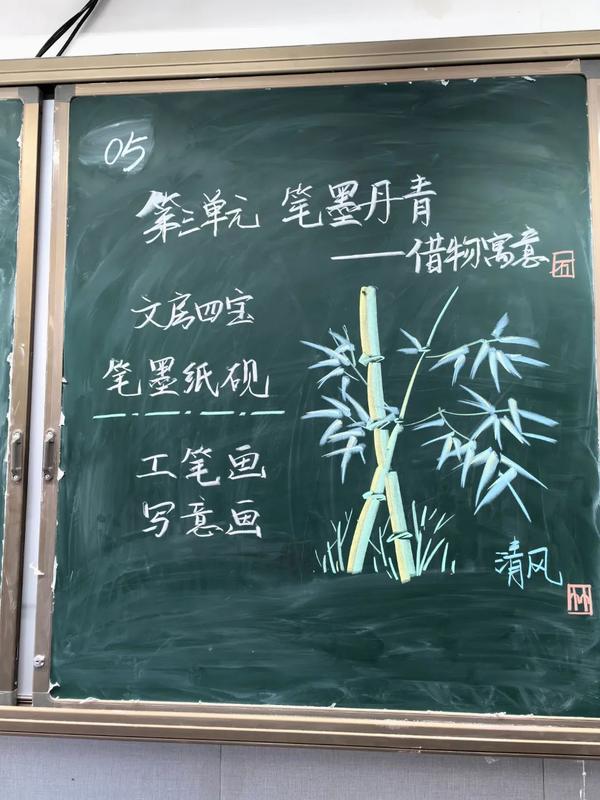 05
第三单元 笔墨丹青
——借物寓意
文房四宝
笔墨纸砚
工笔画
写意画
清风